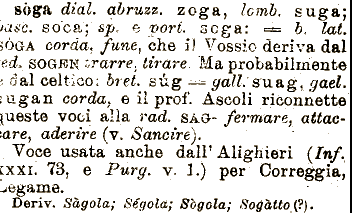 sòga dial. abruzz. zoga, lomb. suga;
basc. soca; sp. e port. soga: = b. lat.
SÒGA corda, fune, che il Vossio deriva dal
ted. SOGEN trarre, tirare. Ma probabilmente
è dal celtico: bret. sûg = gall. suag, gael.
sugan corda, e il prof. Ascoli riconnette
queste voci alla rad. SAG- fermare, attac-
care, aderire (v. Sancire).
Voce usata anche dall' Alighieri (Inf.
XXXI. 73, e Purg. v. 1.) per Correggia,
Legame.
Deriv. Sàgola; Ségola; Sògola; Sogàtto(?).